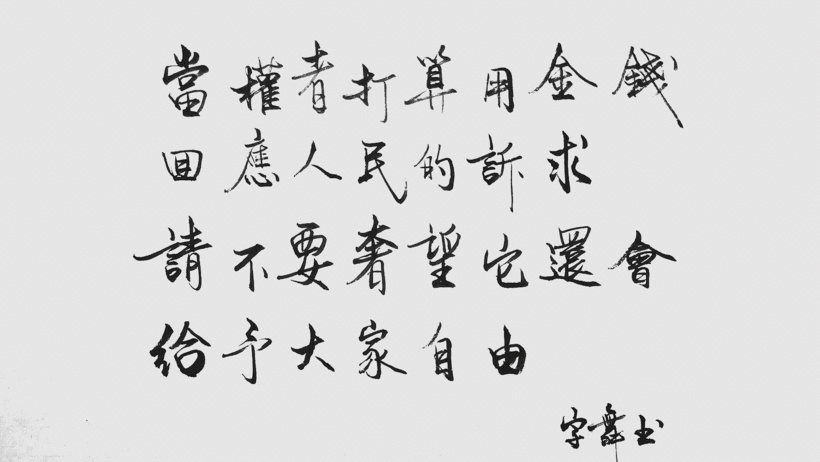 當權者打算用金錢
回應人民的訴求
請不要奢望它還會
給予大家自由
字舞书